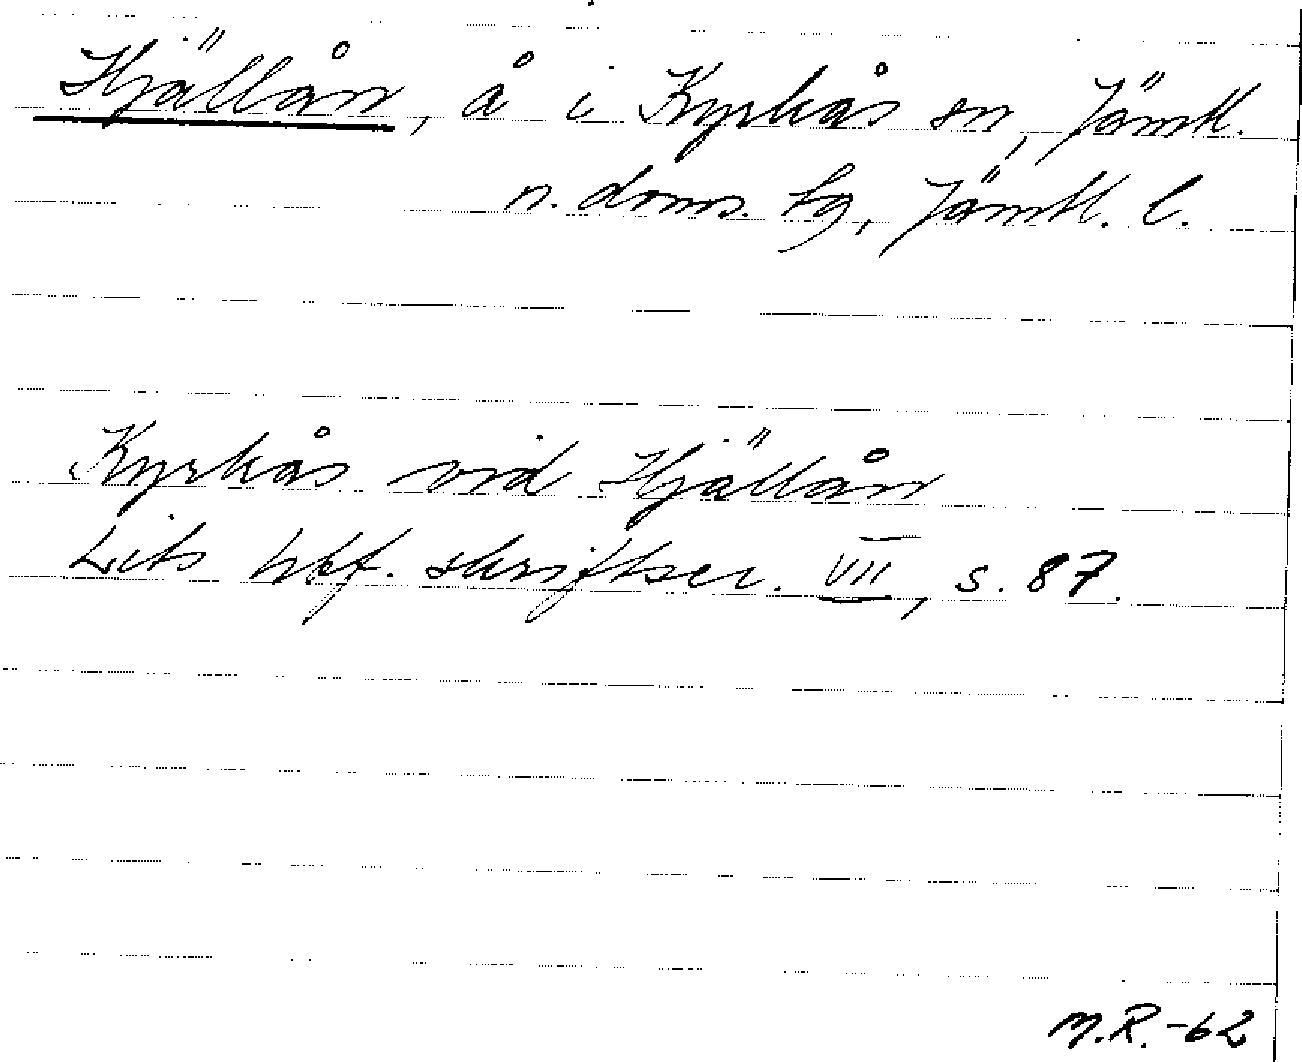 Hjällån, å i Kyrkås sn, Jämtl.
n. doms. tg, Jämtl. l.
Kyrkås vid Hjällån
Lits hbf. skriftser. VII, s. 87.
M.R.-62